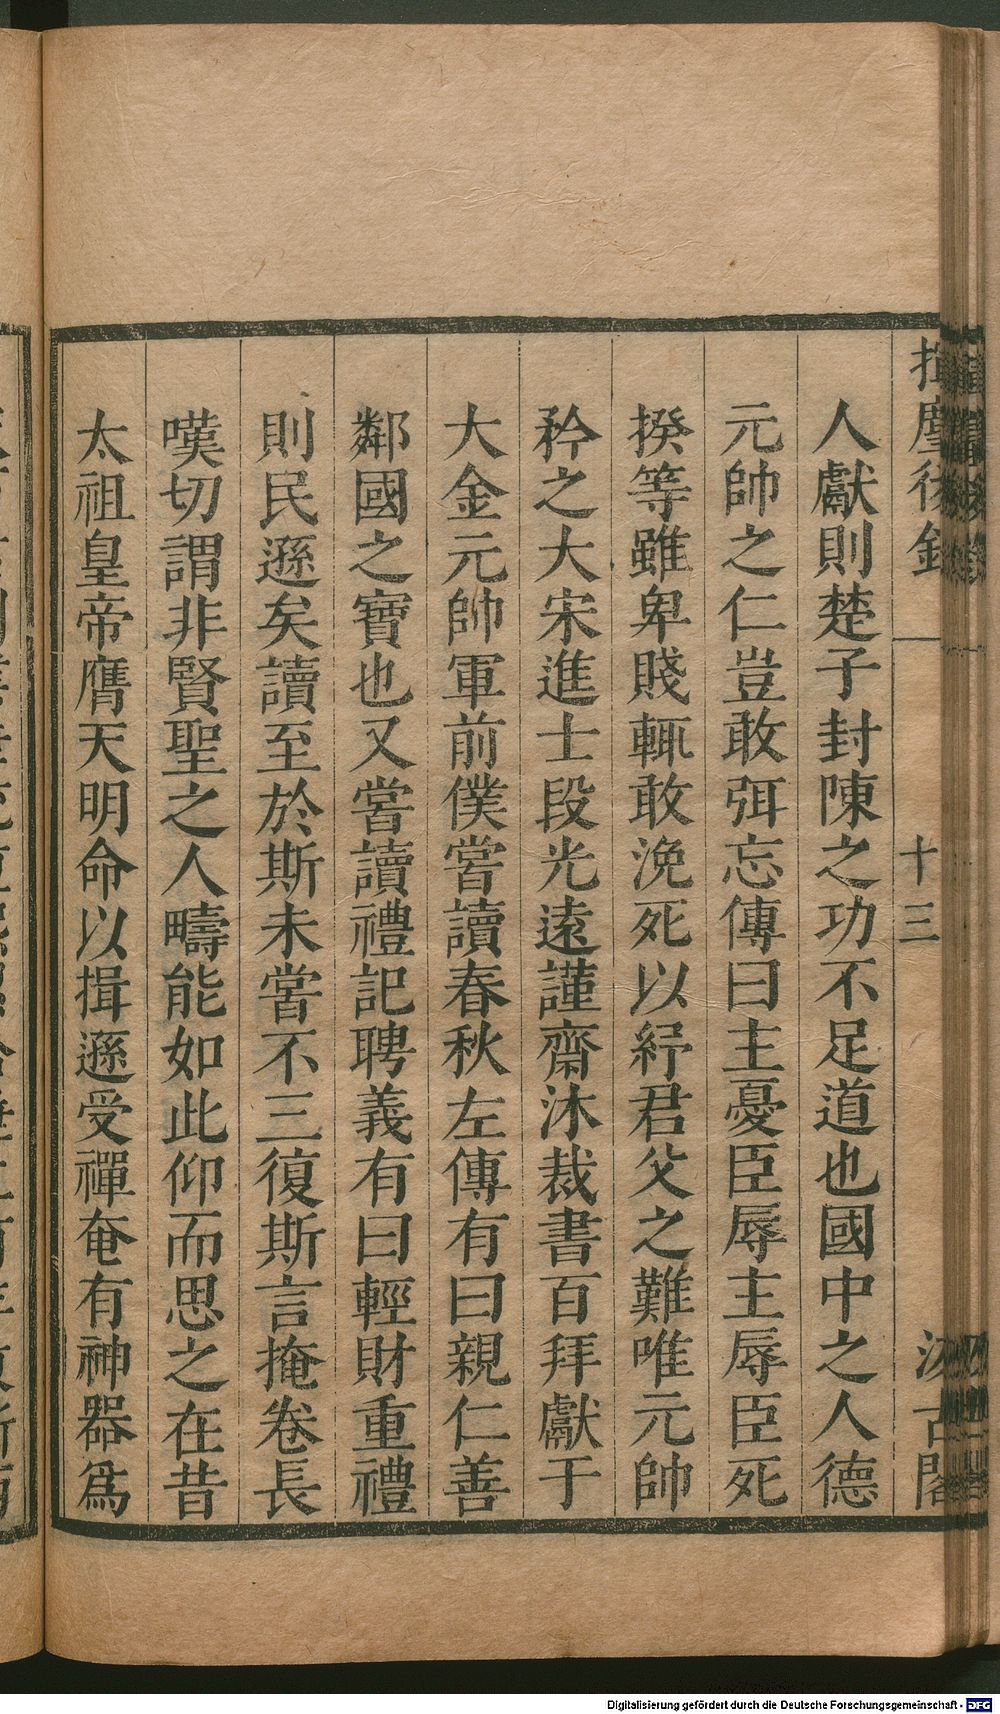 揮麈後錄
十三
汲古閣
人獻則楚子封陳之功不足道也國中之人德
元帥之仁豈敢弭忘傳曰主憂臣辱主辱臣死
揆等雖卑賤輒敢浼死以紓君父之難唯元帥
矜之大宋進士段光遠謹齋沐裁書百拜獻于
大金元帥軍前僕嘗讀春秋左傳有曰親仁善
鄰國之寶也又嘗讀禮記聘義有曰輕財重禮
則民遜矣讀至於斯未嘗不三復斯言掩卷長
嘆切謂非賢聖之人疇能如此仰而思之在昔
太祖皇帝膺天明命以揖遜受禪奄有神器爲
Digitalisierung gefördert durch die Deutsche Forschungsgemeinschaft - DFG